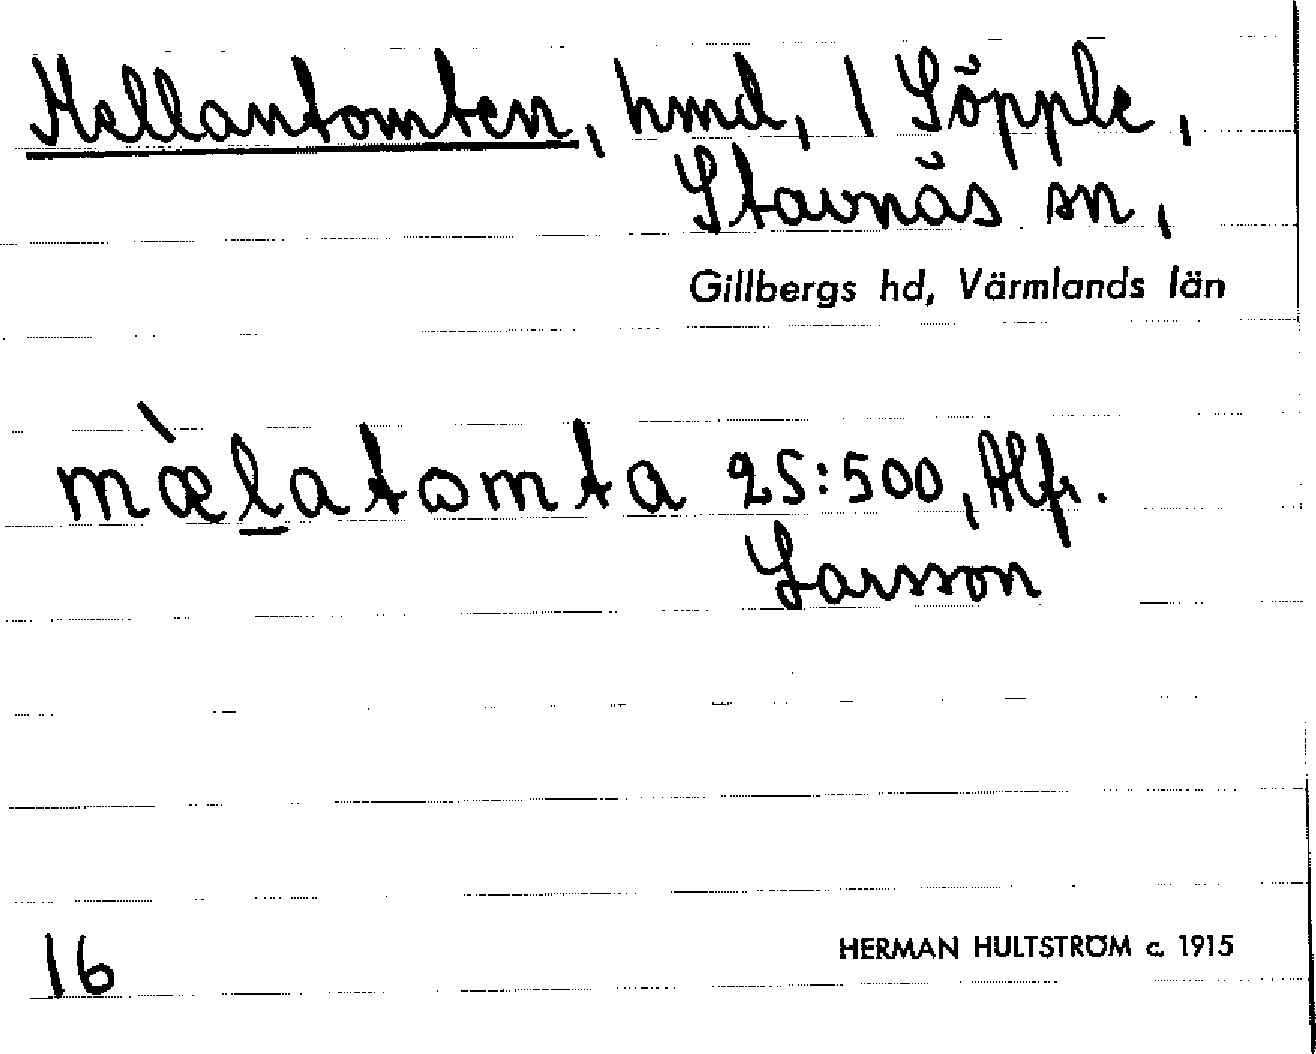 Mellantomten, hmd, 1 Söpple,
Stavnäs sn,
Gillbergs hd, Värmlands län
mæ̀l̲atomta 25:500, Alfr.
Larsson
16
HERMAN HULTSTRÖM c. 1915